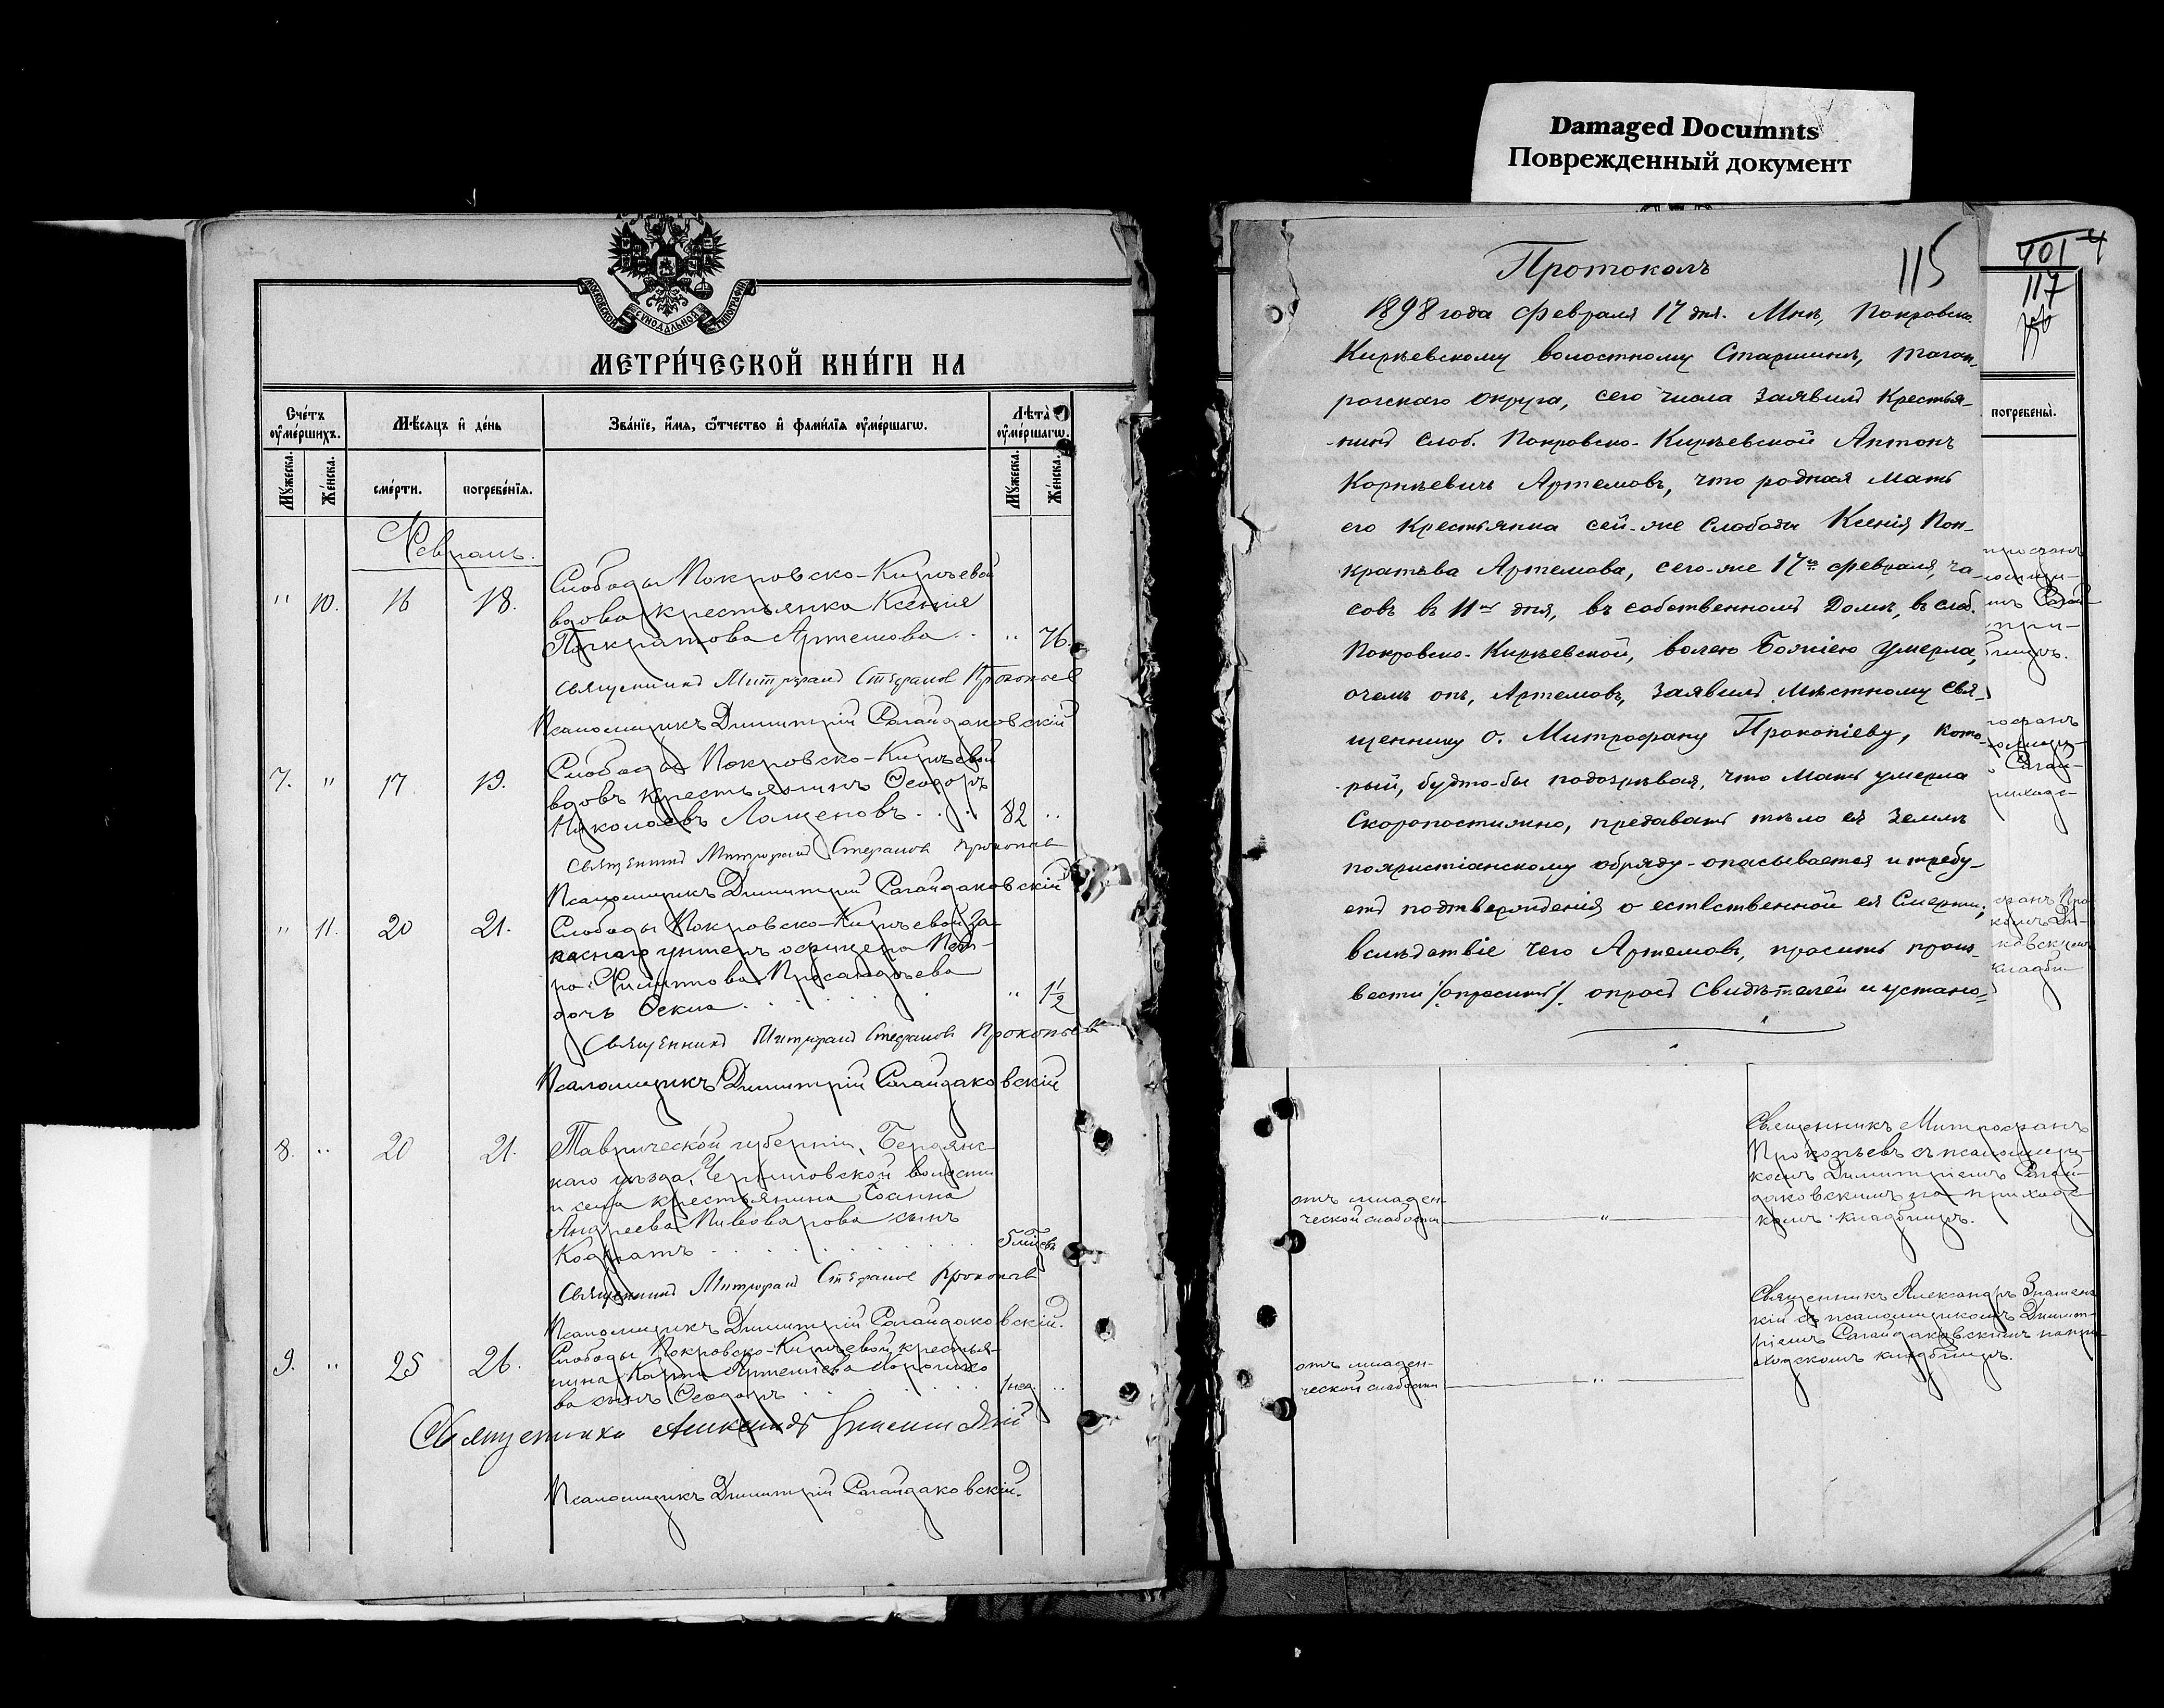 Damaged Documnts
Поврежденный документ
МОСКОВСКОЙ СѴНОДАЛЬНОЙ ТИПОГРАФІИ
МЕТРИ́ЧЕСКОЙ КНИ́ГИ НА
Сче́тъ ᲂу҆ме́ршихъ.
Мѣ́сяцъ и҆ де́нь
Зва́нїе, и҆́мя, ѻ҆́тчество и҆ фами́лїя ᲂу҆ме́ршагѡ.
Лѣта̀ ᲂу҆ме́ршагѡ.
Мꙋ́жеска.
Же́нска.
сме́рти.
погребе́нїѧ.
Мꙋ́жеска.
Же́нска.
Февраль.
" 10. 16 18.
Слободы Покровско-Кирѣевой
вдова крестьянка Ксенія
Панкратова Артемова. " 76.
Священникъ Митрофанъ Стефановъ Прокопьев
Псаломщикъ Димитрій Сагайдаковскій
7. " 17 19.
Слободы Покровско-Кирѣевой
вдовъ крестьянинъ Ѳеодоръ
Николаевъ Лащеновъ. 82 "
Священникъ Митрофанъ Стефановъ Прокопьев
Псаломщикъ Димитрій Сагайдаковскій
" 11. 20 21.
Слободы Покровско-Кирѣевой за-
паснаго унтеръ офицера Пет-
ра Филипова
дочь " 1 1/2
Священникъ Митрофанъ Стефановъ Прокопьев
Псаломщикъ Димитрій Сагайдаковскій
8. " 20 21.
Таврической губерніи, Бердянс-
каго уѣзда, Черниговской волости
и села крестьянина Іоанна
Андреева Пивоварова сынъ
Кодратъ 5 мѣсев
Священникъ Митрофанъ Стефановъ Прокопьев
Псаломщикъ Димитрій Сагайдаковскій.
9. " 25 26.
Слободы Покровско-Кирѣевой крестья-
нина Артеміева
ва сынъ Ѳеодоръ 1 нед. "
Священникъ Александръ Знаменскій
Псаломщикъ Димитрій Сагайдаковскій.
Протоколъ
115
1898 года Февраля 17 дня. Мнѣ, Покровско-
Кирѣевскому волостному Старшинѣ, Таган-
рогскаго округа, сего числа заявилъ Крестья-
нинъ Слоб. Покровско-Кирѣевской Антонъ
Корнѣевичъ Артемовъ, что родная Мать
его Крестьянка сей-же Слободы Ксенія Пан-
кратьва Артемова, сего-же 17го февраля, ча-
совъ въ 11ть дня, въ собственномъ Домѣ, въ слоб.
Покровско-Кирѣевской, волею Божіею умерла,
очемъ онъ, Артемовъ, заявилъ мѣстному Свя-
щеннику О. Митрофану Прокопіеву, кото-
рый, будто-бы подозрѣвая, что Мать умерла
Скоропостижно, предавать тѣло ея Землѣ
похристіанскому обряду-опасывается и требу-
етъ подтвержденія о естественной ея Смерти;
вслѣдствіе чего Артемовъ, проситъ произ-
вести /опросить/ опросъ Свидѣтелей и устано-
117
погребены̀.
отъ младен-
ческой слабости "
Священникъ Митрофанъ
Прокопьевъ съ псаломщи-
комъ Димитріемъ Сагай-
даковскимъ на приходс-
комъ кладбищѣ.
отъ младен-
ческой слабости "
Священникъ Александръ Знаменс
кій съ псаломщикомъ Димит-
ріемъ Сагайдаковскимъ напри-
ходскомъ кладбищѣ.